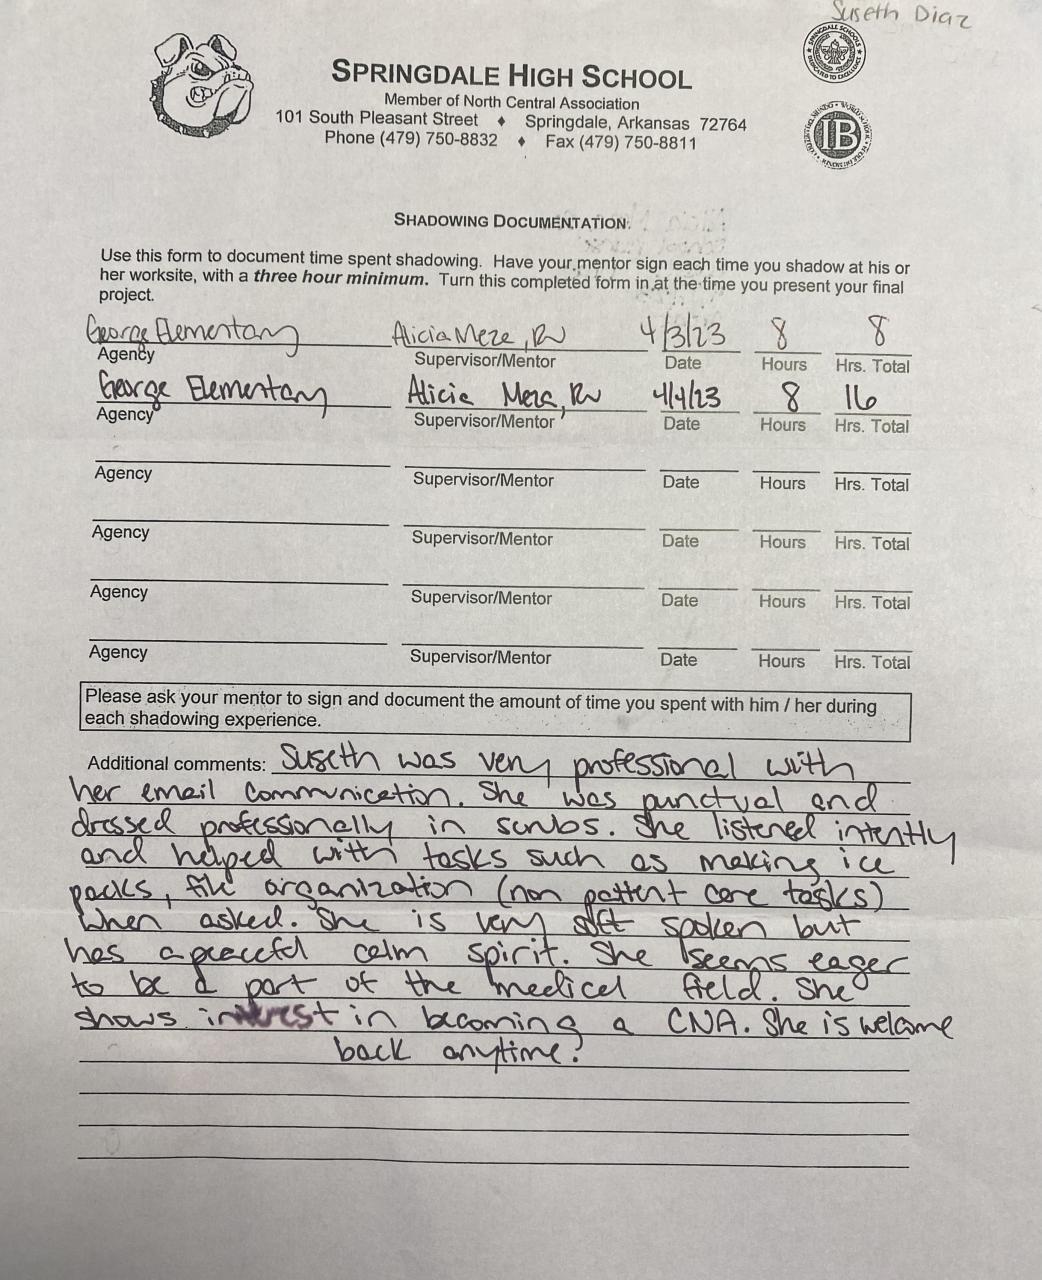 Suseth Diaz
SPRINGDALE HIGH SCHOOL
Member of North Central Association
101 South Pleasant Street ♦ Springdale, Arkansas 72764
Phone (479) 750-8832 ♦ Fax (479) 750-8811
SPRINGDALE SCHOOLS
DEDICATED TO EXCELLENCE
IB
SHADOWING DOCUMENTATION
Use this form to document time spent shadowing. Have your mentor sign each time you shadow at his or
her worksite, with a three hour minimum. Turn this completed form in at the time you present your final
project.
George Elementary Alicia Meza, RN 4/3/23 8 8
Agency Supervisor/Mentor Date Hours Hrs. Total
George Elementary Alicia Meza, RN 4/4/23 8 16
Agency Supervisor/Mentor Date Hours Hrs. Total
Agency Supervisor/Mentor Date Hours Hrs. Total
Agency Supervisor/Mentor Date Hours Hrs. Total
Agency Supervisor/Mentor Date Hours Hrs. Total
Agency Supervisor/Mentor Date Hours Hrs. Total
Please ask your mentor to sign and document the amount of time you spent with him / her during
each shadowing experience.
Additional comments: Suseth was very professional with
her email communication. She was punctual and
dressed professionally in scrubs. She listened intently
and helped with tasks such as making ice
packs, file organization (non patient care tasks)
when asked. She is very soft spoken but
has a peaceful calm spirit. She seems eager
to be a part of the medical field. She
shows interest in becoming a CNA. She is welcome
back anytime!